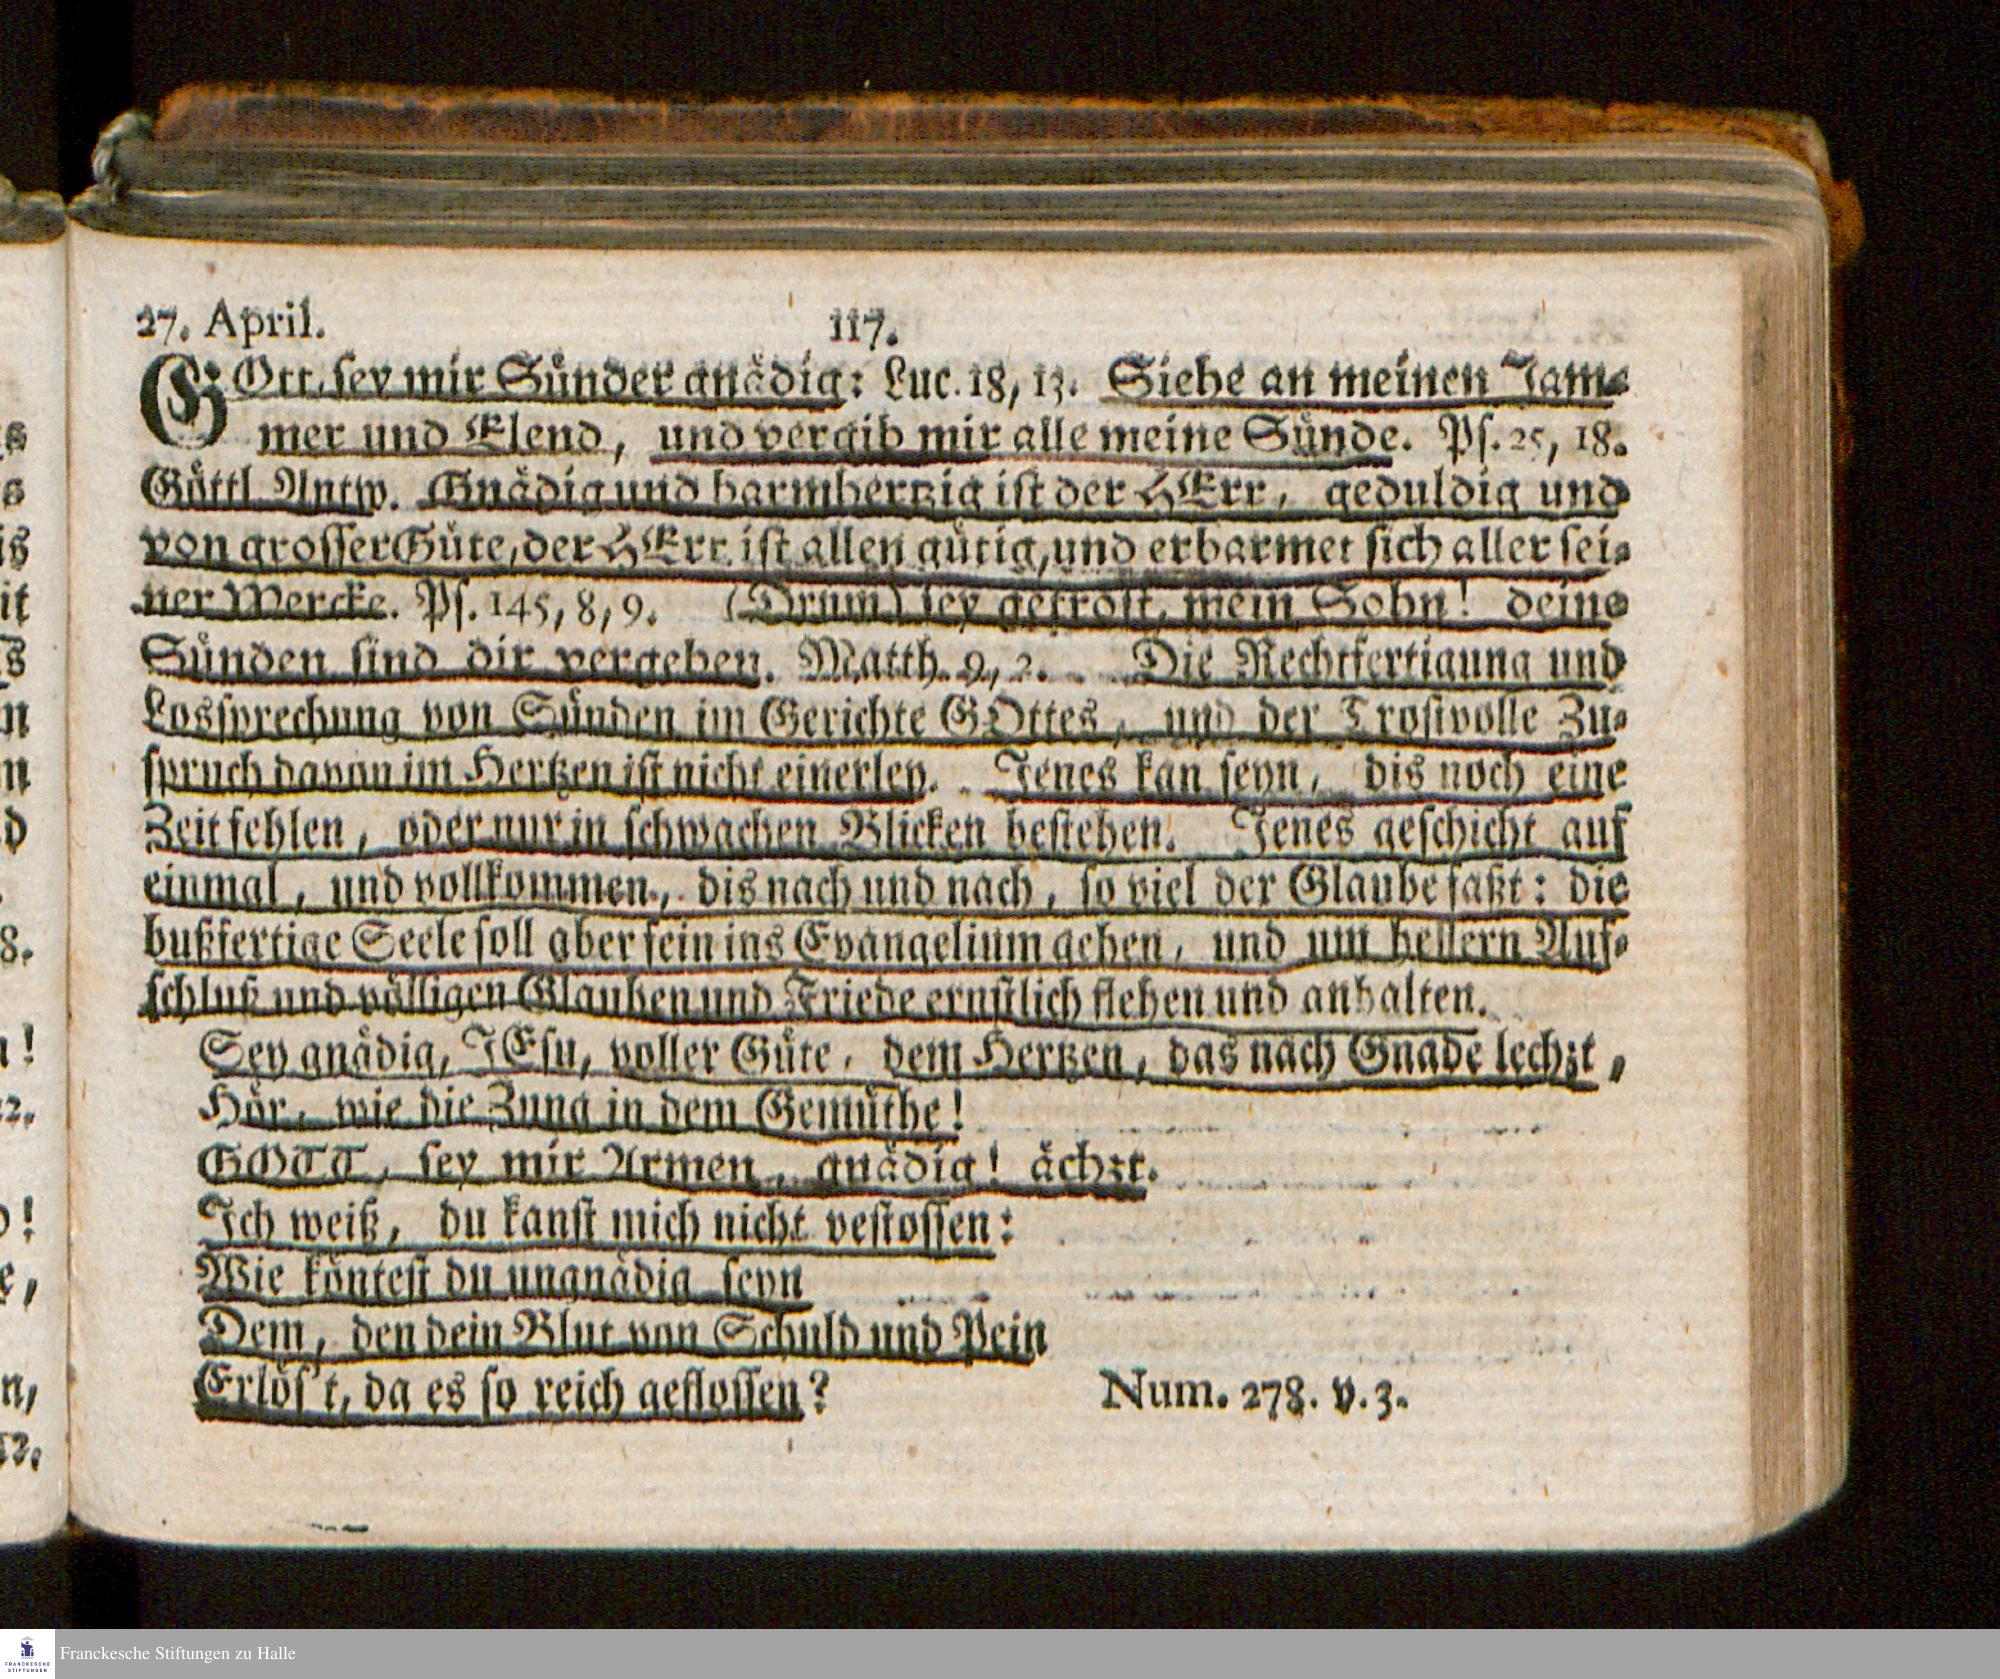 27. April. 117.
GOtt, sey mir Sünder gnädig: Luc. 18, 13. Siehe an meinen Jam-
mer und Elend, und vergib mir alle meine Sünde. Ps. 25, 18.
Göttl. Antw. Gnädig und barmhertzig ist der HErr, geduldig und
von grosser Güte, der HErr ist allen gütig, und erbarmet sich aller sei-
ner Wercke. Ps. 145, 8, 9. (Drum) sey getrost, mein Sohn! deine
Sünden sind dir vergeben. Matth. 9, 2. Die Rechtfertigung und
Lossprechung von Sünden im Gerichte GOttes, und der Trostvolle Zu-
spruch davon im Hertzen ist nicht einerley. Jenes kan seyn, dis noch eine
Zeit fehlen, oder nur in schwachen Blicken bestehen. Jenes geschicht auf
einmal, und vollkommen, dis nach und nach, so viel der Glaube faßt: die
bußfertige Seele soll aber fein ins Evangelium gehen, und um hellern Auf-
schluß und völligen Glauben und Friede ernstlich flehen und anhalten.
Sey gnädig, JEsu, voller Güte, dem Hertzen, das nach Gnade lechzt,
Hör, wie die Zung in dem Gemüthe!
GOTT, sey mir Armen, gnädig! ächzt.
Ich weiß, du kanst mich nicht vestossen:
Wie köntest du ungnädig seyn
Dem, den dein Blut von Schuld und Pein
Erlös't, da es so reich geflossen? Num. 278. v. 3.
FRANCKESCHE
STIFTUNGEN
Franckesche Stiftungen zu Halle